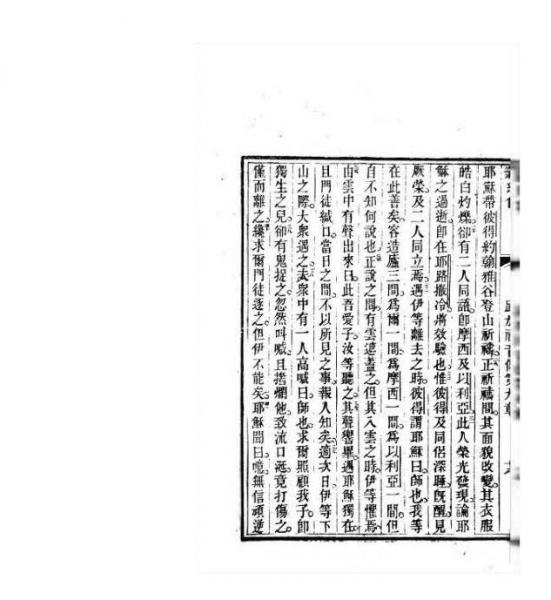 路加福音傳第九章
耶穌帶彼得約翰雅谷登山祈禱。正祈禱間。其面貌改變。其衣服
皓白灼爍。卻有二人同語。卽摩西及以利亞。此人榮光發現。論耶
穌之過逝。卽在耶路撒冷將效驗也。惟彼得及同侶深睡。旣醒。見
厥榮及二人同立焉。遇伊等離去之時。彼得謂耶穌曰。師也。我等
在此善矣。容造廬三間。爲爾一間。爲摩西一間。爲以利亞一間。但
自不知何說也。正說之間。有雲遮蓋之。但其入雲之時。伊等懼焉。
由雲中有聲出來曰。此吾愛子。汝等聽之。其聲響畢。遇耶穌獨在。
且門徒緘口。當日之間。不以所見之事。報人知矣。適次日伊等下
山之際。大衆遇之。夫衆中有一人高喊曰。師也。求爾照顧我子。卽
獨生之兒。卻有鬼捉之。忽然叫喊。且搭爛他。致流口涎。竟打傷之。
僅而離之。纔求爾門徒逐之。但伊不能矣。耶穌聞曰。噫。無信頑逆